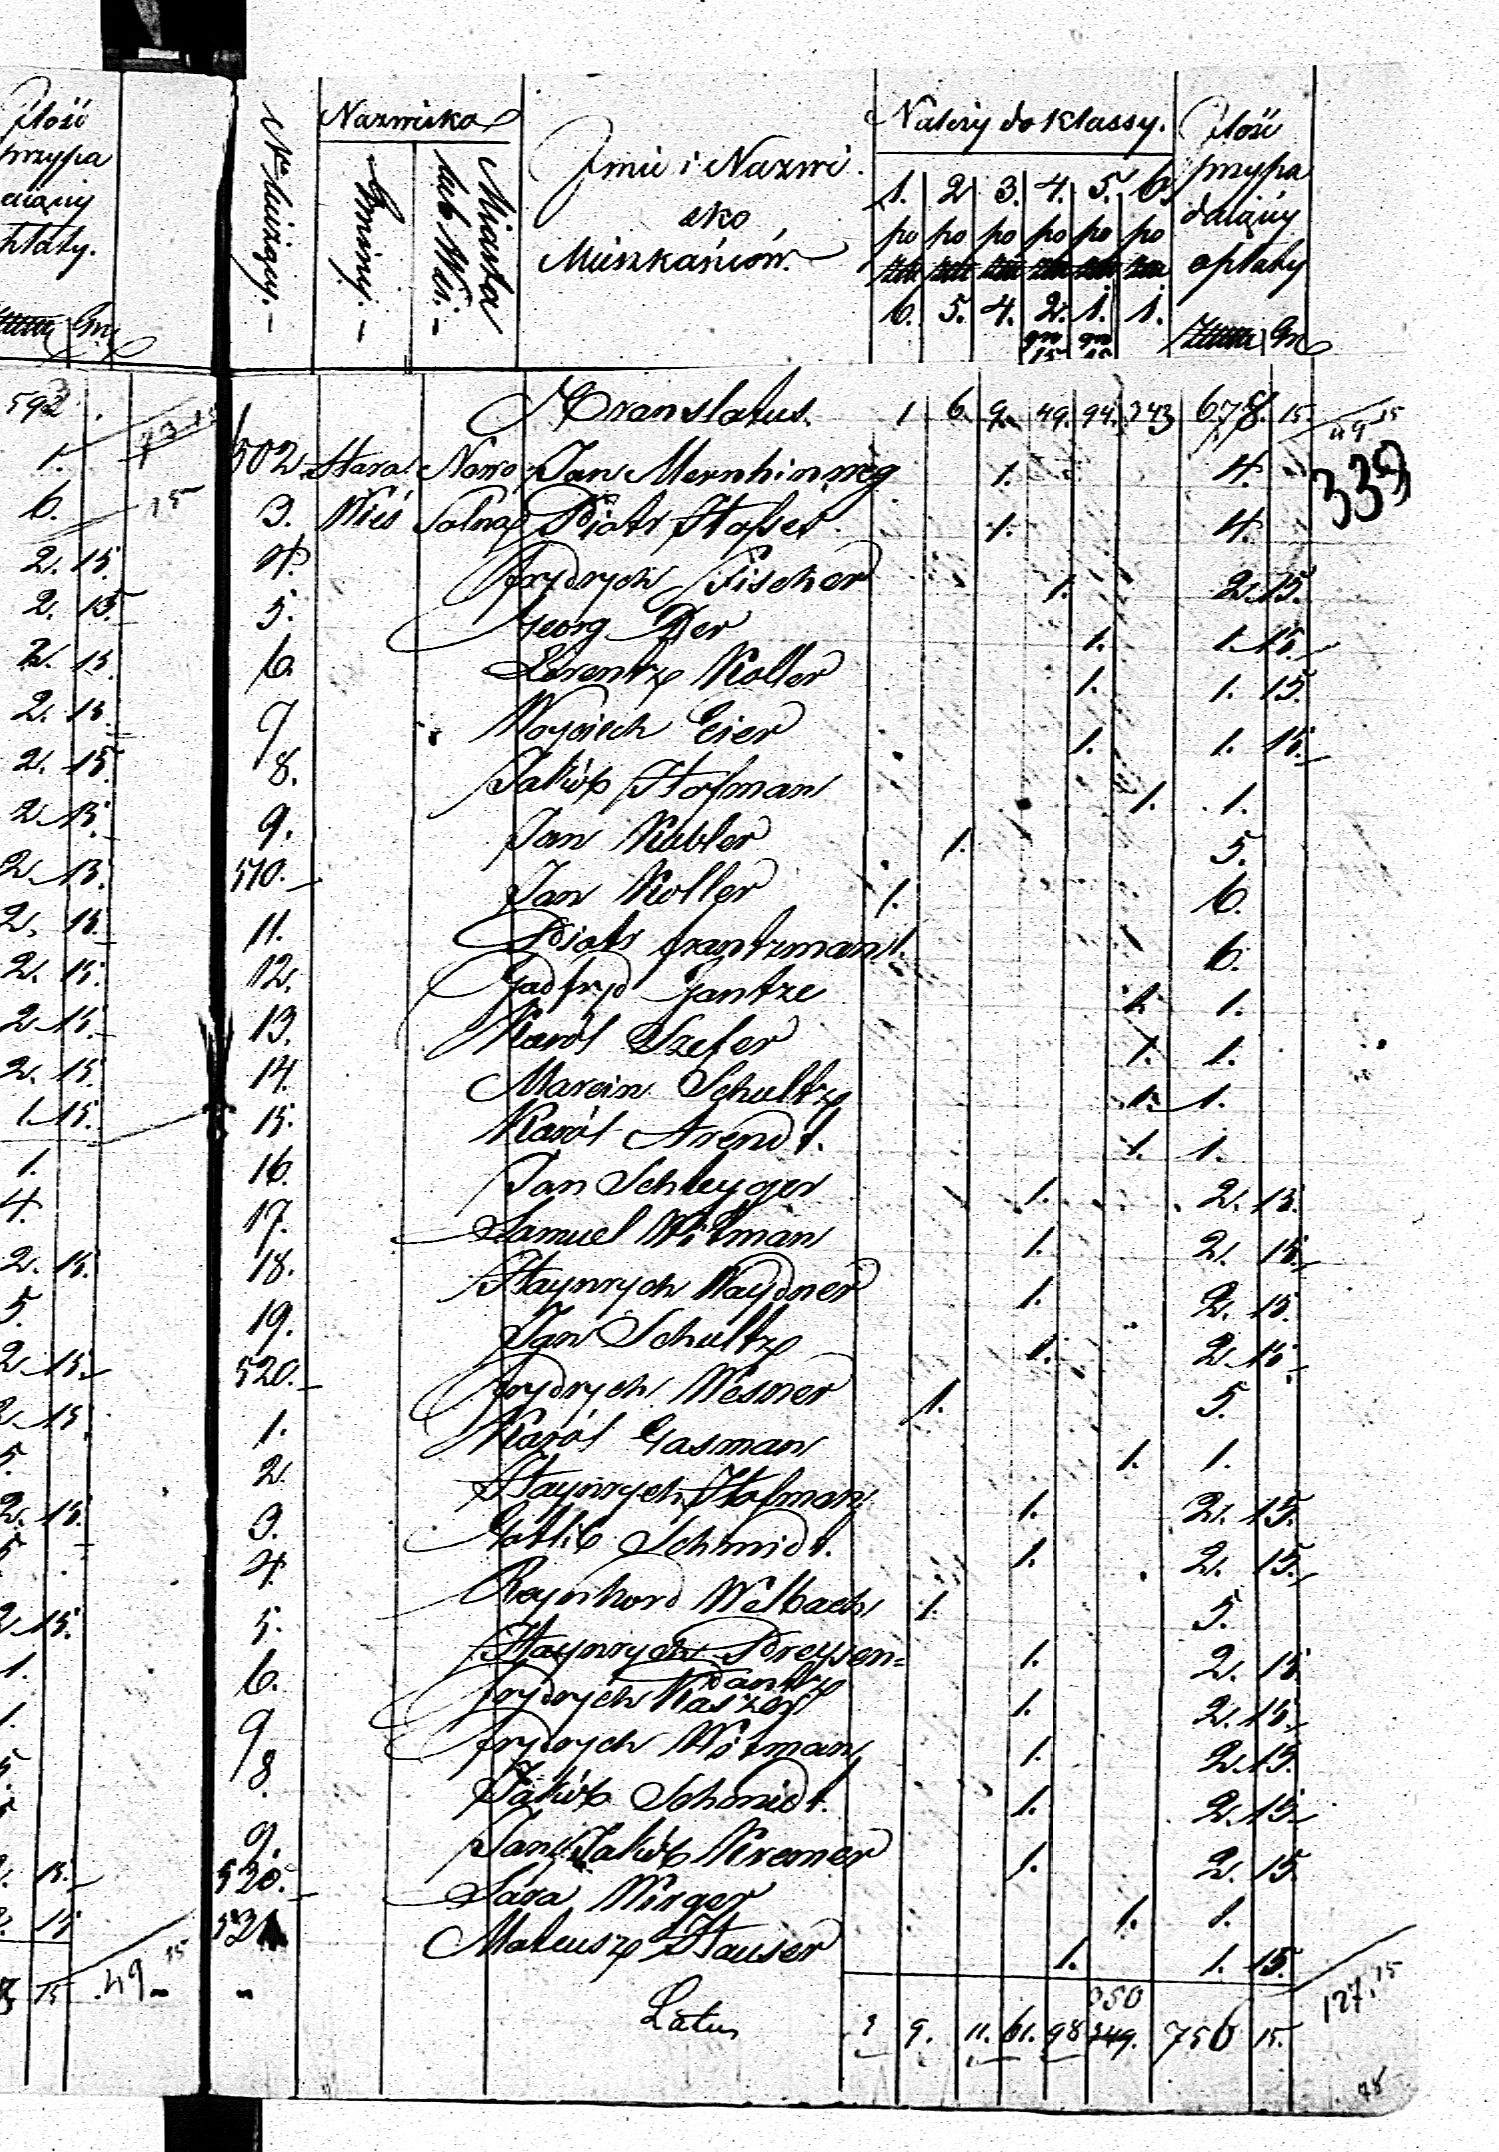 Ilość
przypa
dający
płaty.
Gr.
593
1.
6.
2. 15.
2. 15.
2. 15.
2. 15.
2. 15.
2. 15.
2. 15.
2. 15.
2. 15.
2. 15.
2. 15.
1. 15.
1.
4.
2. 15.
5.
2. 15.
2. 15.
5.
2. 15.
5.
2. 15.
1.
1.
5.
15.
15
15 49 15
Nazwiska Należy do klassy. Ilość
No bieżący. Gminy. Miasta lub Wsi. Imie i Nazwi 1. 2 3. 4. 5. 6. przypa
sko po po po po po po dający
Mieszkańców. opłaty
6. 5. 4. 2. 1. 1.
gr 15 gr 15 Gr
Translatus. 1 6. 9. 49. 94. 343 678. 15. 49 15
502 Stara Nowo Jan Mernhinweg 1. 4. 339
3. Wieś Solna Piotr Hafser 1. 4.
4. Frydrych Fischer 1. 2. 15.
5. Georg Der 1. 1. 15.
6. Lorentz Koller 1. 1. 15.
7 Woyciech Eier 1. 1. 15.
8. Jakób Hofman 1. 1.
9. Jan Kubler 1. 5.
510. Jan Koller 1. 6.
11. Piotr Frantzman 1. 6.
12. Gadfryd Jantze 1. 1.
13. Karól Szefer 1. 1.
14. Marcin Schultz 1. 1.
15. Karól Arendt. 1. 1.
16. Jan Schleyger 1. 2. 15.
17. Samuel Witman 1. 2. 15.
18. Haynrych Waydner 1. 2. 15.
19. Jan Schultz 1. 2. 15.
520. Frydrych Wesner 1. 5.
1. Karól Gasman 1. 1.
2 Haynrych Hofman 1. 2. 15.
3. Gotlib Schmidt. 1. 2. 15.
4. Reynhard Welbach 1. 5.
5. Haynrych Dreysen= 1. 2. 15.
dantz
6. Frydrych Kaszer 1. 2. 15.
7 Frydrych Witman 1. 2. 15.
8. Jakób Schmidt. 1. 2. 15.
9. Jan Jakób Kremer 1. 2. 15.
530. Sara Wirger 1. 1.
531 Mateusz Hauser 1. 1. 15.
350
Latus 9. 11. 61. 98 349. 756 15. 127. 15